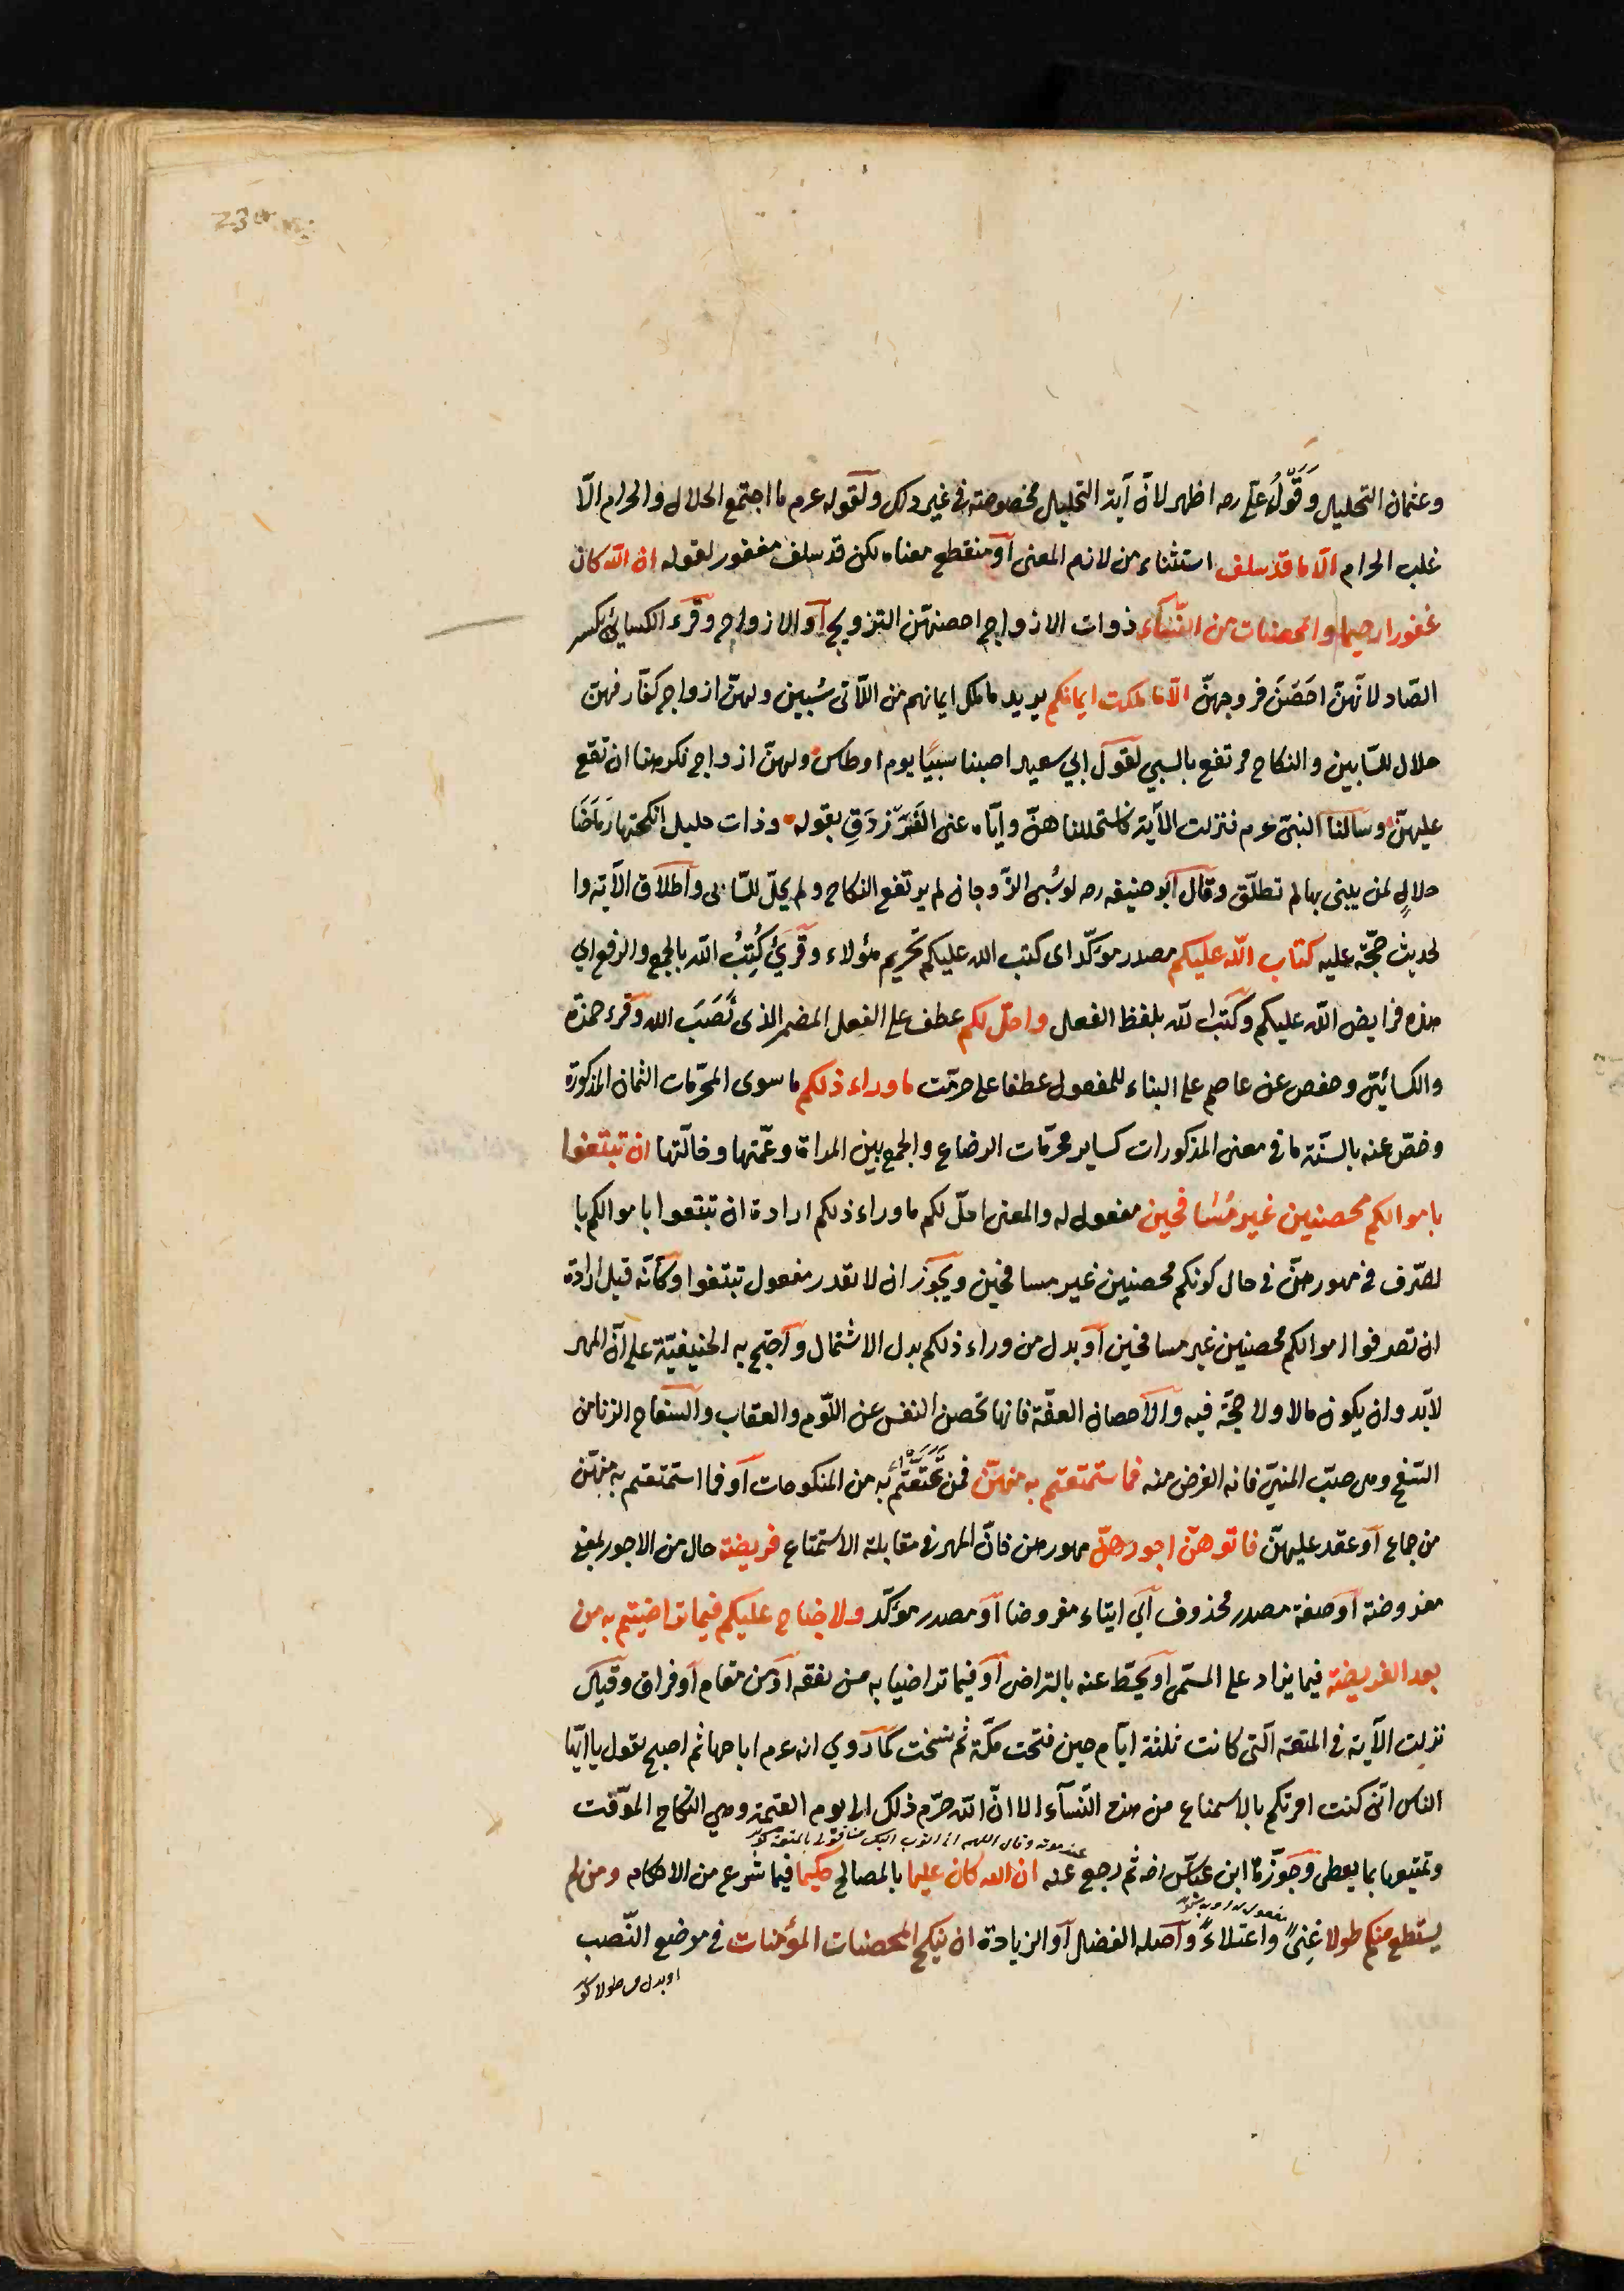 وعثمان التحليل وقول علي رضه اظهر لانّ آية التحليل مخصوصة في غير ذلك ولقوله عرم ما اجتمع الحلال والحرام الّا
غلب الحرام الّا ما قد سلف استثناء من لازم المعنى أو منقطع معناه لكن قد سلف مغفور لقوله ان الله كان
غفورا رحيما والمحصنات من النّساء ذوات الازواج احصنهنّ التزويج أو الازواج وقرء الكسائي بكسر
الصّاد لانّهنّ احصَنّ فروجهنّ الّا ما ملكت ايمانكم يريد ما ملك ايمانهم من اللّاتى سُبين ولهنّ ازواج كفّار فهنّ
حلال للسّابين والنكاح مرتفع بالسبي لقول ابي سعيد اصبنا سبيًا يوم اوطاس ولهنّ ازواج فكرهنا ان نقع
عليهنّ وسالنا النبىّ عرم فنزلت الآية فاستحللناهنّ وايّاه عنى الفَرَزدَقِ بقوله وذات حليل انكحتها رماحُنا
حلالٍ لمن يبنى بها لم تطلّق وقال أبو حنيفه رح لو سُبى الزّوجان لم يرتفع النكاح ولم يحلّ للسّابى واطلاق الآية وا
لحديث حجّة عليه كتاب الله عليكم مصدر مؤكّد اى كتب الله عليكم تحريم هؤلاء وقرئ كُتِبُ الله بالجمع والرفع اي
هذه فرايض الله عليكم وكَتَب الله بلفظ الفعل واحلّ لكم عطف على الفعل المضمر الذى نَصَبَ الله وقرء حمزة
والكسائيّ وحفص عن عاصم على البناء للمفعول عطفا على حرّمت ما وراء ذلكم ما سوى المحرّمات الثمان المذكورة
وخصّ عنه بالسنّة ما في معنى المذكورات كساير محرّمات الرضاع والجمع بين المراة وعمّتها وخالتها ان تبتغوا
باموالكم محصنين غير مُسَافحين مفعول له والمعنى احلّ لكم ما وراء ذلكم ارادة ان تبتغوا باموالكم با
لصّرف في مهورهنّ في حال كونكم محصنين غير مسافحين ويجوز ان لا يقدر مفعول تبتغوا وكأنّه قيل ارادة
ان تصرفوا اموالكم محصنين غير مسافحين أو بدل من وراء ذلكم بدل الاشتمال وآحتج به الحنيفيّة على انّ المهر
لابّد وان يكون مالا ولا حجّة فيه والاحصان العفّة فانها تحصن النفس عن اللّوم والعقاب والسفاح الزنا من
السّفح وهى صبّ المنيّ فانه الغرض منه فما ستمتعتم به منهنّ فمن تمتّعتم به من المنكوحات أو فما استمتعتم به منهنّ
من جماع أو عقد عليهنّ فاتوهنّ اجورهنّ مهورهن فانّ المهر في مقابلة الاستمتاع فريضة حال من الاجور بمعنى
مفروضة أو صفة مصدر محذوف آي ايتاء مفروضا أو مصدر مؤكّد ولا جناح عليكم فيما تراضيتم به من
بعد الفريضة فيما يزاد على المسمّى أو يحطّ عنه بالتراضى أو فيما تراضيا به من نفقه او من مقام أو فراق وقيل
نزلت الآية في المتعة الّتى كانت ثلثة ايّام حين فتحت مكّة ثم نسخت كما روي انه عرم اباحها ثم اصبح يقول يا ايّها
الناس انّى كنت امرتكم بالاستمتاع من هذه النّسآء الا انّ الله حرّم ذلك الى يوم القيمة وهي النكاح الموقّت
عند موته وقال اللهم انى اتوب اليك من قولى بالمتعة
وتمتيعها بما يعطى وجوّزة ابن عبّاس رضه ثم رجع عنه ان الله كان عليما بالمصالح حكيما فيما شرع من الاحكام ومن لم
يستطع منكم طولا غِنىً واعتلاءً وآصله الفضل أو الزيادة ان ينكح المحصنات المؤمنات في موضع النّصب
او بدل من طولا